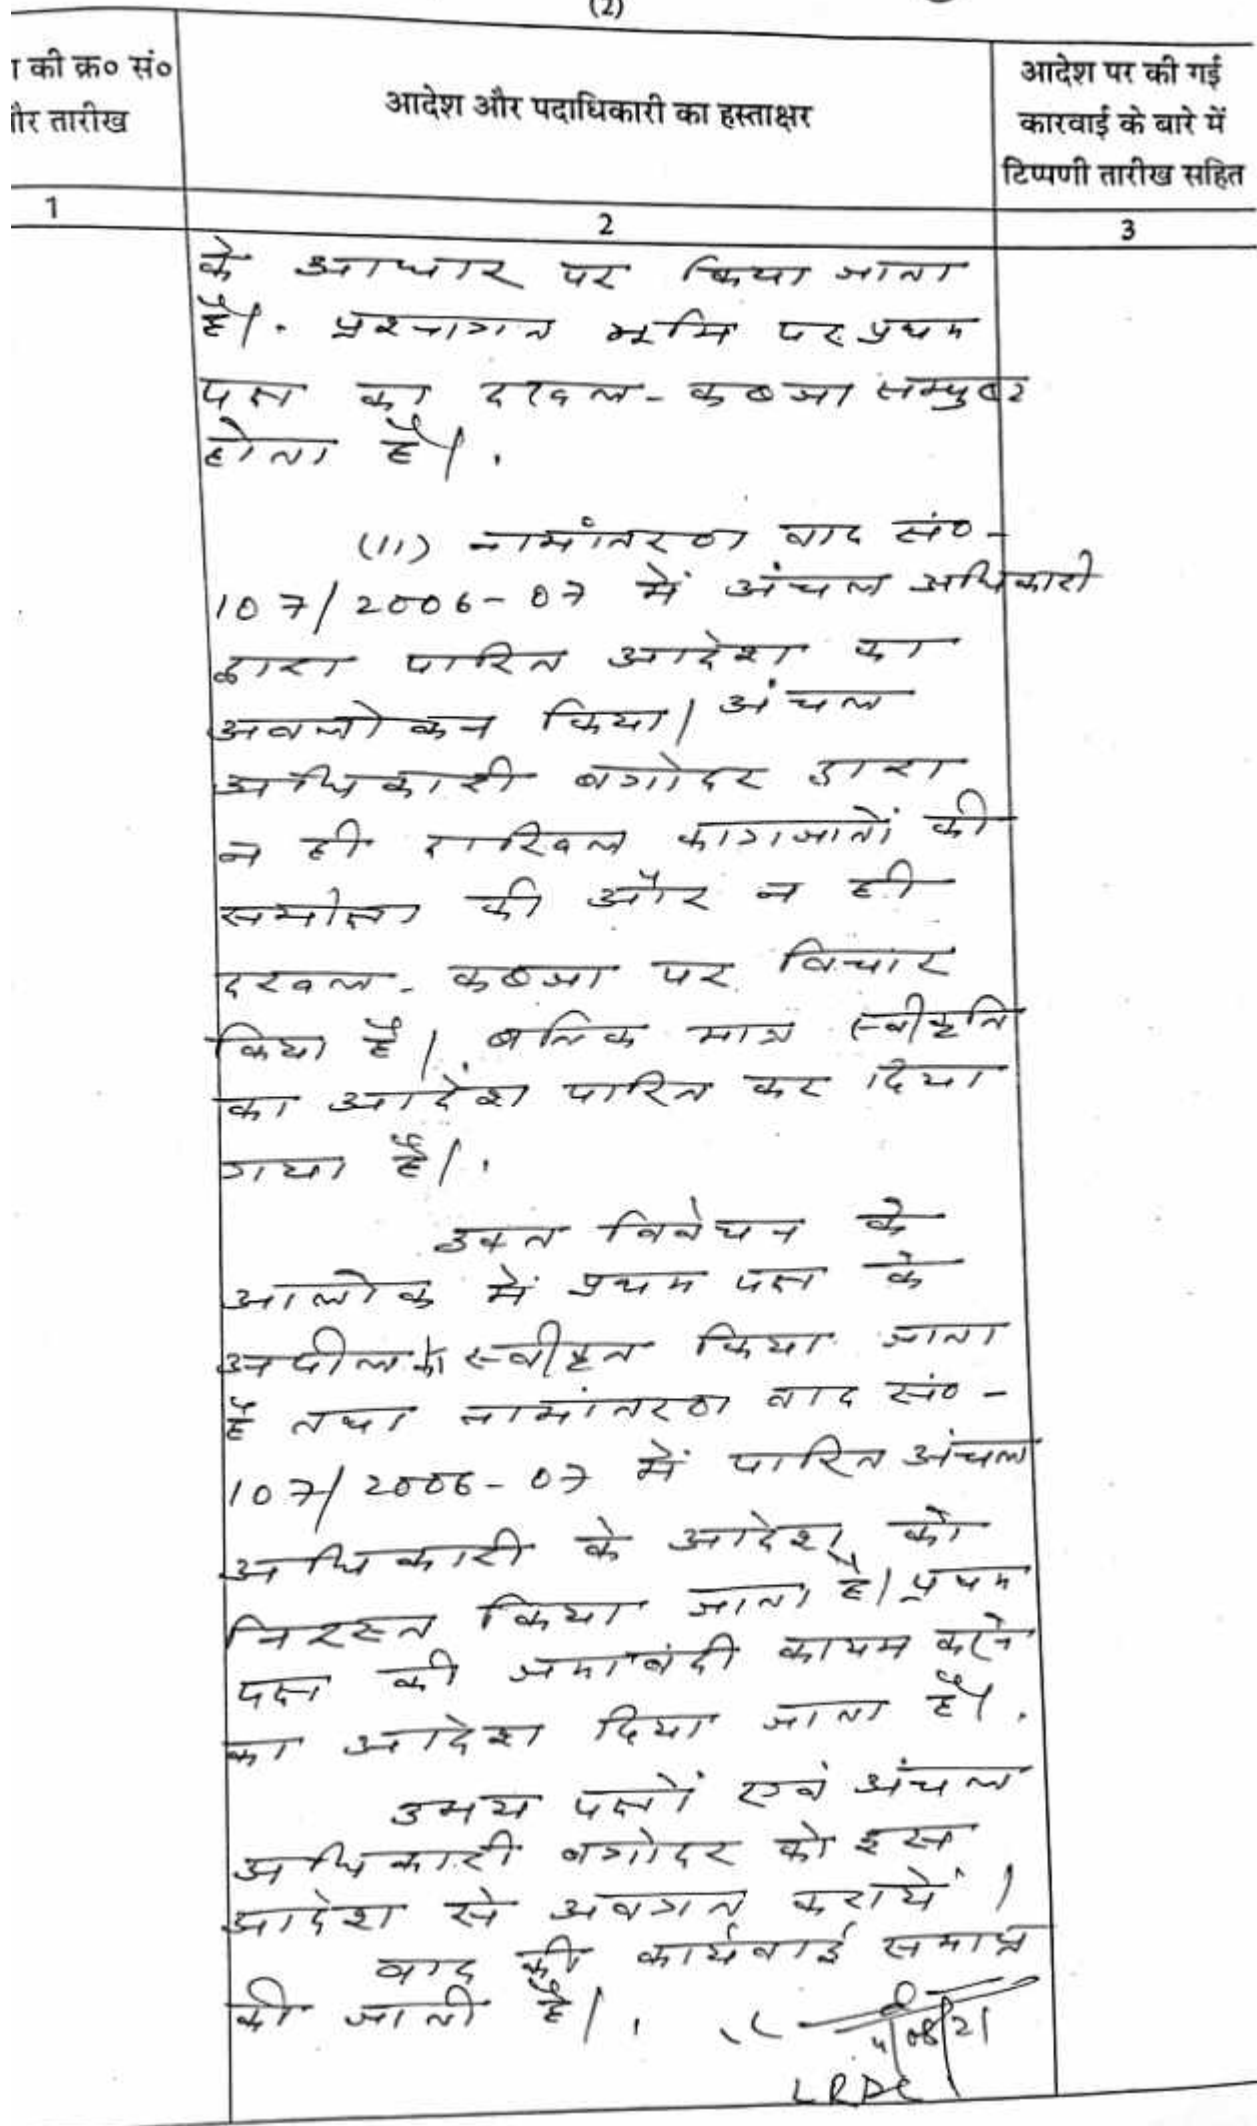 (2)
की क्र० सं०
और तारीख
आदेश और पदाधिकारी का हस्ताक्षर
आदेश पर की गई
कारवाई के बारे में
टिप्पणी तारीख सहित
1
2
3
के आधार पर किया जाता
है। प्रश्नागत भूमि पर प्रथम
पक्ष का दखल-कब्जा सम्पुष्ट
होता है।
(11) नामांतरण वाद सं०-
107/2006-07 में अंचल अधिकारी
द्वारा पारित आदेश का
अवलोकन किया। अंचल
अधिकारी बगोदर द्वारा
न ही दाखिल कागजातों की
समीक्षा की और न ही
दखल-कब्जा पर विचार
किया है। बल्कि मात्र स्वीकृति
का आदेश पारित कर दिया
गया है।
उक्त विवेचन के
आलोक में प्रथम पक्ष के
अपील को स्वीकृत किया जाता
है तथा नामांतरण वाद सं०-
107/2006-07 में पारित अंचल
अधिकारी के आदेश को
निरस्त किया जाता है। प्रथम
पक्ष की जमाबंदी कायम करने
का आदेश दिया जाता है।
उभय पक्षों एवं अंचल
अधिकारी बगोदर को इस
आदेश से अवगत करायें।
वाद की कार्यवाई समाप्त
की जाती है।
08/21
LRDC